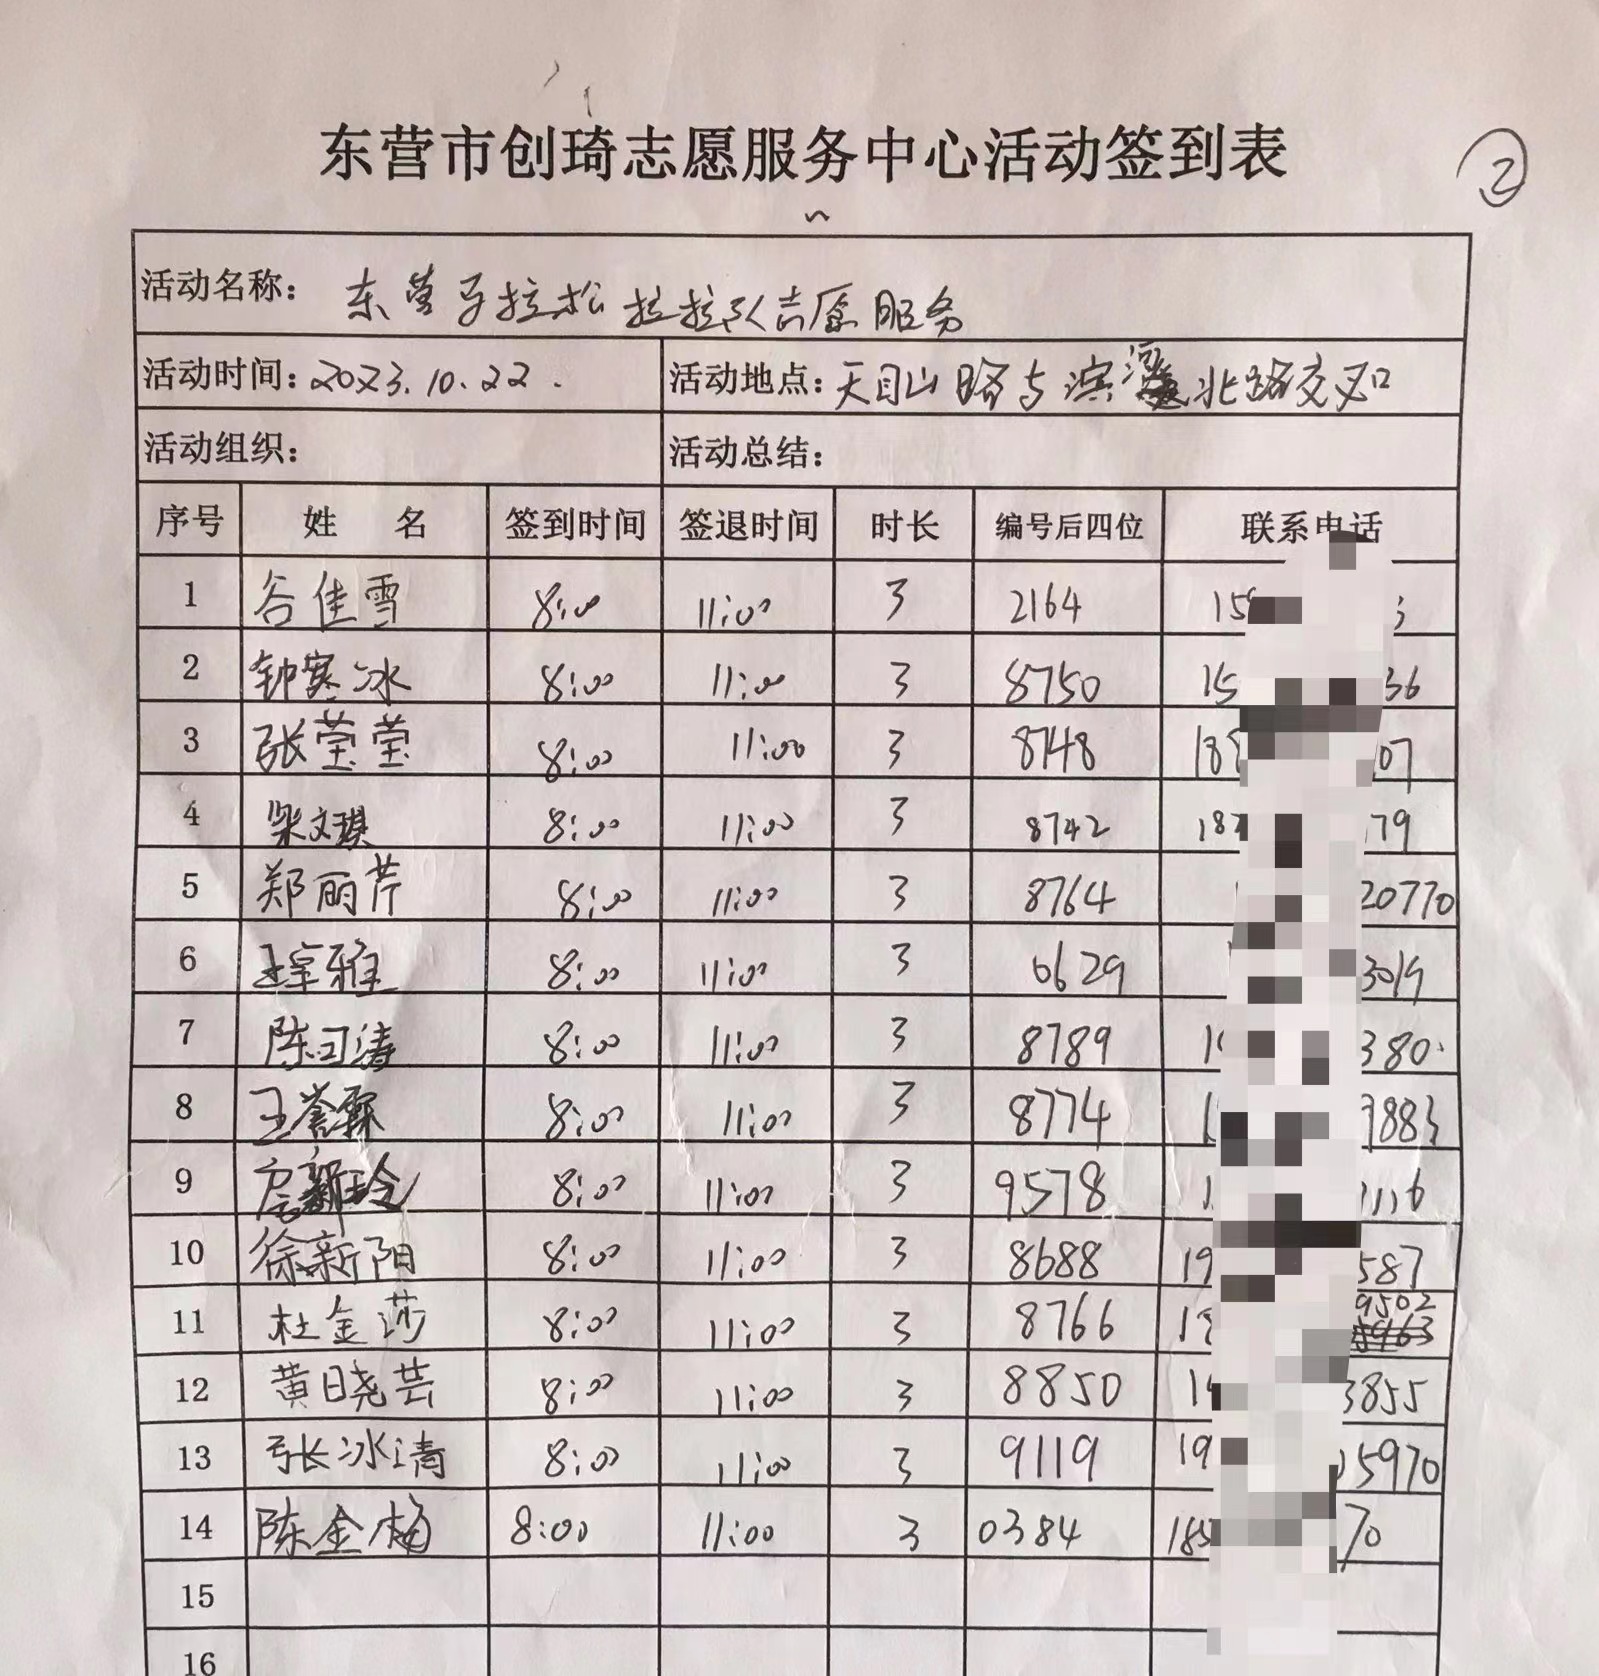 ②
东营市创琦志愿服务中心活动签到表
活动名称: 东营马拉松拉拉队志愿服务
活动时间: 2023.10.22. 活动地点: 天目山路与滨河北路交叉口
活动组织: 活动总结:
序号 姓 名 签到时间 签退时间 时长 编号后四位 联系电话
1 谷佳雪 8:00 11:00 3 2164 15 3
2 钟寒冰 8:00 11:00 3 8750 15 36
3 张莹莹 8:00 11:00 3 8748 188 07
4 梁文琪 8:00 11:00 3 8742 187 79
5 郑丽芹 8:00 11:00 3 8764 1 20770
6 雅 8:00 11:00 3 0629 3019
7 陈 涛 8:00 11:00 3 8789 1 380
8 王誉霖 8:00 11:00 3 8774 1 9883
9 新玲 8:00 11:00 3 9578 1 1116
10 徐新阳 8:00 11:00 3 8688 19 587
11 杜金莎 8:00 11:00 3 8766 18 9502
12 黄晓芸 8:00 11:00 3 8850 1 3855
13 张冰清 8:00 11:00 3 9119 19 5970
14 陈金梅 8:00 11:00 3 0384 185 70
15
16